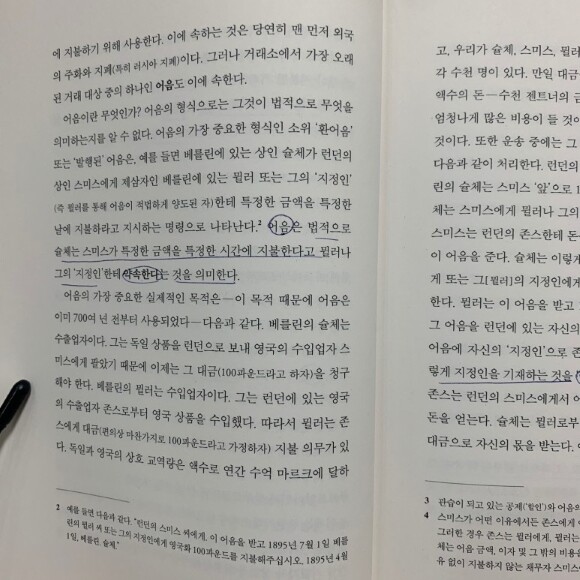 에 지불하기 위해 사용한다. 이에 속하는 것은 당연히 맨 먼저 외국
의 주화와 지폐(특히 러시아 지폐)이다. 그러나 거래소에서 가장 오래
된 거래 대상 중의 하나인 어음도 이에 속한다.
어음이란 무엇인가? 어음의 형식으로는 그것이 법적으로 무엇을
의미하는지를 알 수 없다. 어음의 가장 중요한 형식인 소위 '환어음'
또는 '발행된' 어음은, 예를 들면 베를린에 있는 상인 슐체가 런던의
상인 스미스에게 제삼자인 베를린에 있는 뮐러 또는 그의 '지정인'
(즉 뮐러를 통해 어음이 적법하게 양도된 자)한테 특정한 금액을 특정한
날에 지불하라고 지시하는 명령으로 나타난다.2 어음은 법적으로
슐체는 스미스가 특정한 금액을 특정한 시간에 지불한다고 뮐러나
그의 '지정인'한테 약속한다는 것을 의미한다.
어음의 가장 중요한 실제적인 목적은—이 목적 때문에 어음은
이미 700여 년 전부터 사용되었다—다음과 같다. 베를린의 슐체는
수출업자이다. 그는 독일 상품을 런던으로 보내 영국의 수입업자 스
미스에게 팔았기 때문에 이제는 그 대금(100파운드라고 하자)을 청구
해야 한다. 베를린의 뮐러는 수입업자이다. 그는 런던에 있는 영국
의 수출업자 존스로부터 영국 상품을 수입했다. 따라서 뮐러는 존
스에게 대금(편의상 마찬가지로 100파운드라고 가정하자) 지불 의무가 있
다. 독일과 영국의 상호 교역량은 액수로 연간 수억 마르크에 달하
2 예를 들면 다음과 같다. "런던의 스미스 씨에게, 이 어음을 받고 1895년 7월 1일 베를
린의 뮐러 씨 또는 그의 지정인에게 영국화 100파운드를 지불해주십시오. 1895년 4월
1일, 베를린, 슐체."
고, 우리가 슐체, 스미스, 뮐러
각 수천 명이 있다. 만일 대금
액수의 돈—수천 젠트너의 금
엄청나게 많은 비용이 들 것이
것이다. 또한 운송 중에는 그
다음과 같이 처리한다. 런던의
린의 슐체는 스미스 '앞'으로 1
체는 스미스에게 뮐러나 그의
스미스는 런던의 존스한테 돈
이 어음을 준다. 슐체는 이렇게
게 또는 그[뮐러]의 지정인에게
한다. 뮐러는 이 어음을 받고
그 어음을 런던에 있는 자신의
어음에 자신의 '지정인'으로 존
렇게 지정인을 기재하는 것을
존스는 런던의 스미스에게서 어
돈을 얻는다. 슐체는 뮐러로부
대금으로 자신의 몫을 받는다. 이
3 관습이 되고 있는 공제('할인')와 어음의
4 스미스가 어떤 이유에서든 존스에게 어
그러한 경우 존스는 뮐러에게, 뮐러는
체는 어음 금액, 이자 및 그 밖의 비용을
유 없이 지불하지 않는 채무자 스미스